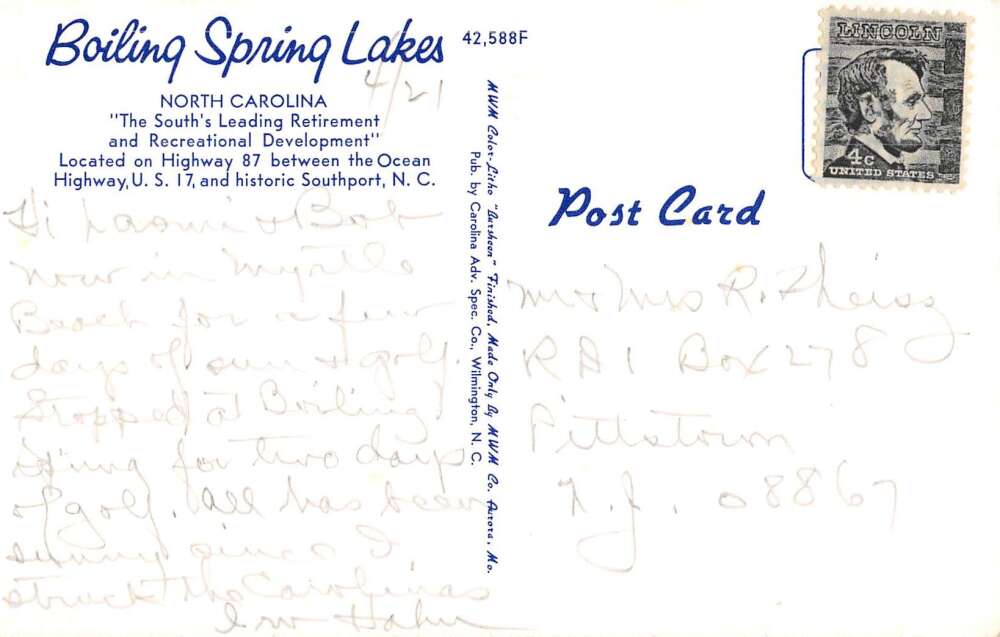 Boiling Spring Lakes
NORTH CAROLINA
"The South's Leading Retirement
and Recreational Development"
Located on Highway 87 between the Ocean
Highway, U. S. 17, and historic Southport, N. C.
4/21
Hi Naomi & Bob
Now in Myrtle
Beach for a few
days of sun & golf.
Stopped at Boiling
Spring for two days
of golf. All has been
sunny since I
struck the Carolinas
Irv Hahn
42,588F
MWM Color-Litho "Aursheen" Finished, Made Only By MWM Co. Aurora, Mo.
Pub. by Carolina Adv. Spec. Co., Wilmington, N. C.
LINCOLN
4c
UNITED STATES
Post Card
Mr & Mrs R. Theisz
RD 1 Box 278
Pittstown
N.J. 08867